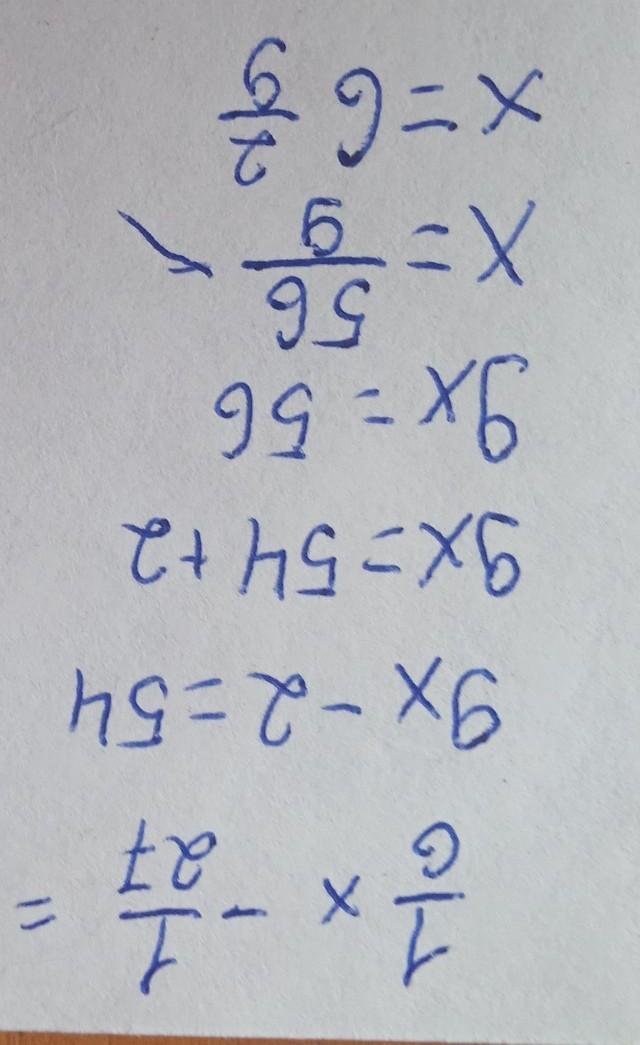 1/6 x - 1/27 =
9x - 2 = 54
9x = 54 + 2
9x = 56
x = 56/9
x = 6 2/9